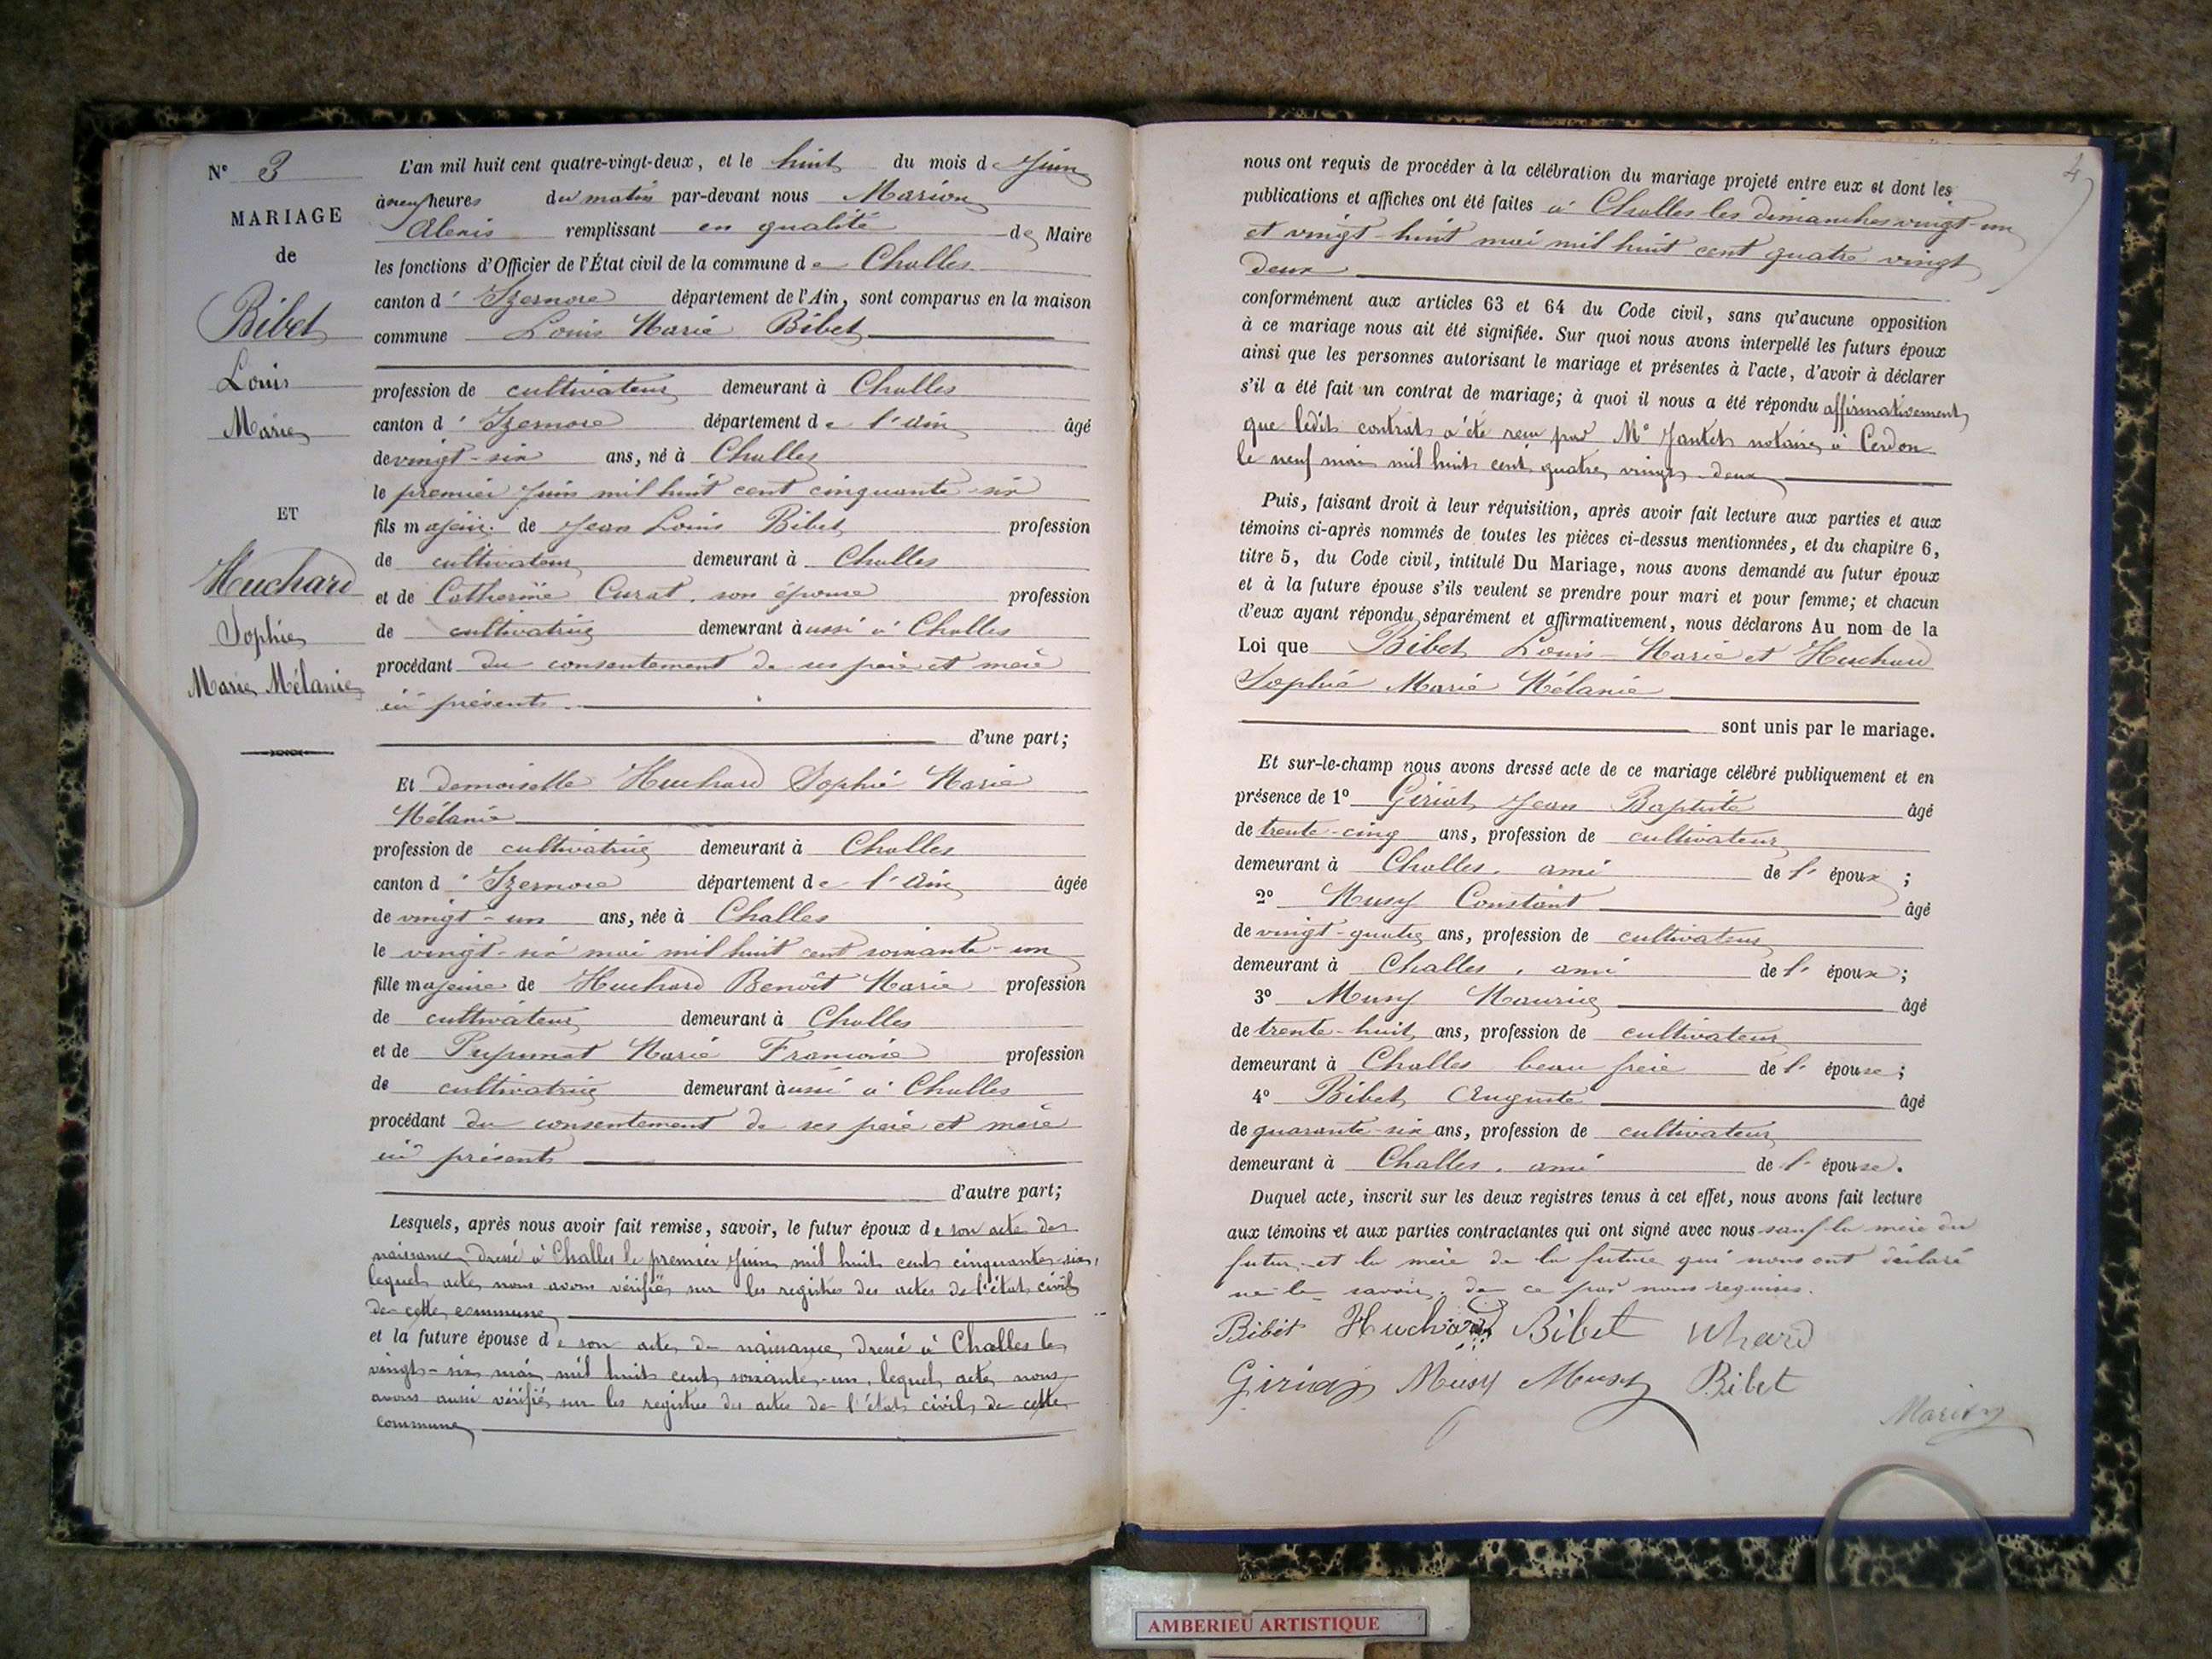 N° 3
MARIAGE
de
Bibet
Louis
Marie
ET
Huchard
Sophie
Marie Mélanie
L'an mil huit cent quatre-vingt-deux, et le huit du mois de Juin
à neuf heures du matin par-devant nous Marion
Alexis remplissant en qualité de Maire
les fonctions d'Officier de l'État civil de la commune de Challes
canton d'Izernore département de l'Ain, sont comparus en la maison
commune Louis Marie Bibet
profession de cultivateur demeurant à Challes
canton d'Izernore département de l'Ain âgé
de vingt-six ans, né à Challes
le premier Juin mil huit cent cinquante-six
fils majeur de Jean Louis Bibet profession
de cultivateur demeurant à Challes
et de Catherine Curat, son épouse profession
de cultivatrice demeurant aussi à Challes
procédant du consentement de ses père et mère
ici présents.
d'une part;
Et demoiselle Huchard Sophie Marie
Mélanie
profession de cultivatrice demeurant à Challes
canton d'Izernore département de l'Ain âgée
de vingt-un ans, née à Challes
le vingt-six mai mil huit cent soixante-un
fille majeure de Huchard Benoît Marie profession
de cultivateur demeurant à Challes
et de Pupunat Marie Francoise profession
de cultivatrice demeurant aussi à Challes
procédant du consentement de ses père et mère
ici présents
d'autre part;
Lesquels, après nous avoir fait remise, savoir, le futur époux de son acte de
naissance, dressé à Challes le premier Juin mil huit cent cinquante-six,
lequel acte nous avons vérifié sur les registres des actes de l'état civil
de cette commune
et la future épouse de son acte de naissance, dressé à Challes le
vingt-six mai mil huit cent soixante-un, lequel acte nous
avons aussi vérifié sur les registres des actes de l'état civil de cette
commune
4
nous ont requis de procéder à la célébration du mariage projeté entre eux et dont les
publications et affiches ont été faites à Challes les dimanches vingt-un
et vingt-huit mai mil huit cent quatre vingt
deux
conformément aux articles 63 et 64 du Code civil, sans qu'aucune opposition
à ce mariage nous ait été signifiée. Sur quoi nous avons interpellé les futurs époux
ainsi que les personnes autorisant le mariage et présentes à l'acte, d'avoir à déclarer
s'il a été fait un contrat de mariage; à quoi il nous a été répondu affirmativement
que ledit contrat a été reçu par Me Jantet notaire à Cerdon
le neuf mai mil huit cent quatre vingt-deux
Puis, faisant droit à leur réquisition, après avoir fait lecture aux parties et aux
témoins ci-après nommés de toutes les pièces ci-dessus mentionnées, et du chapitre 6,
titre 5, du Code civil, intitulé Du Mariage, nous avons demandé au futur époux
et à la future épouse s'ils veulent se prendre pour mari et pour femme; et chacun
d'eux ayant répondu séparément et affirmativement, nous déclarons Au nom de la
Loi que Bibet Louis-Marie et Huchard
Sophie Marie Mélanie
sont unis par le mariage.
Et sur-le-champ nous avons dressé acte de ce mariage célébré publiquement et en
présence de 1° Giriat Jean Baptiste âgé
de trente-cinq ans, profession de cultivateur
demeurant à Challes, ami de l'époux;
2° Musy Constant âgé
de vingt-quatre ans, profession de cultivateur
demeurant à Challes, ami de l'époux;
3° Musy Maurice âgé
de trente-huit ans, profession de cultivateur
demeurant à Challes beau frère de l'épouse;
4° Bibet Auguste âgé
de quarante-six ans, profession de cultivateur
demeurant à Challes, ami de l'épouse.
Duquel acte, inscrit sur les deux registres tenus à cet effet, nous avons fait lecture
aux témoins et aux parties contractantes qui ont signé avec nous sauf la mère du
futur, et la mère de la future qui nous ont déclaré
ne le savoir, de ce par nous requises.
Bibet Huchard Bibet uhard
Giriat Musy Musy Bibet
Marion
AMBERIEU ARTISTIQUE